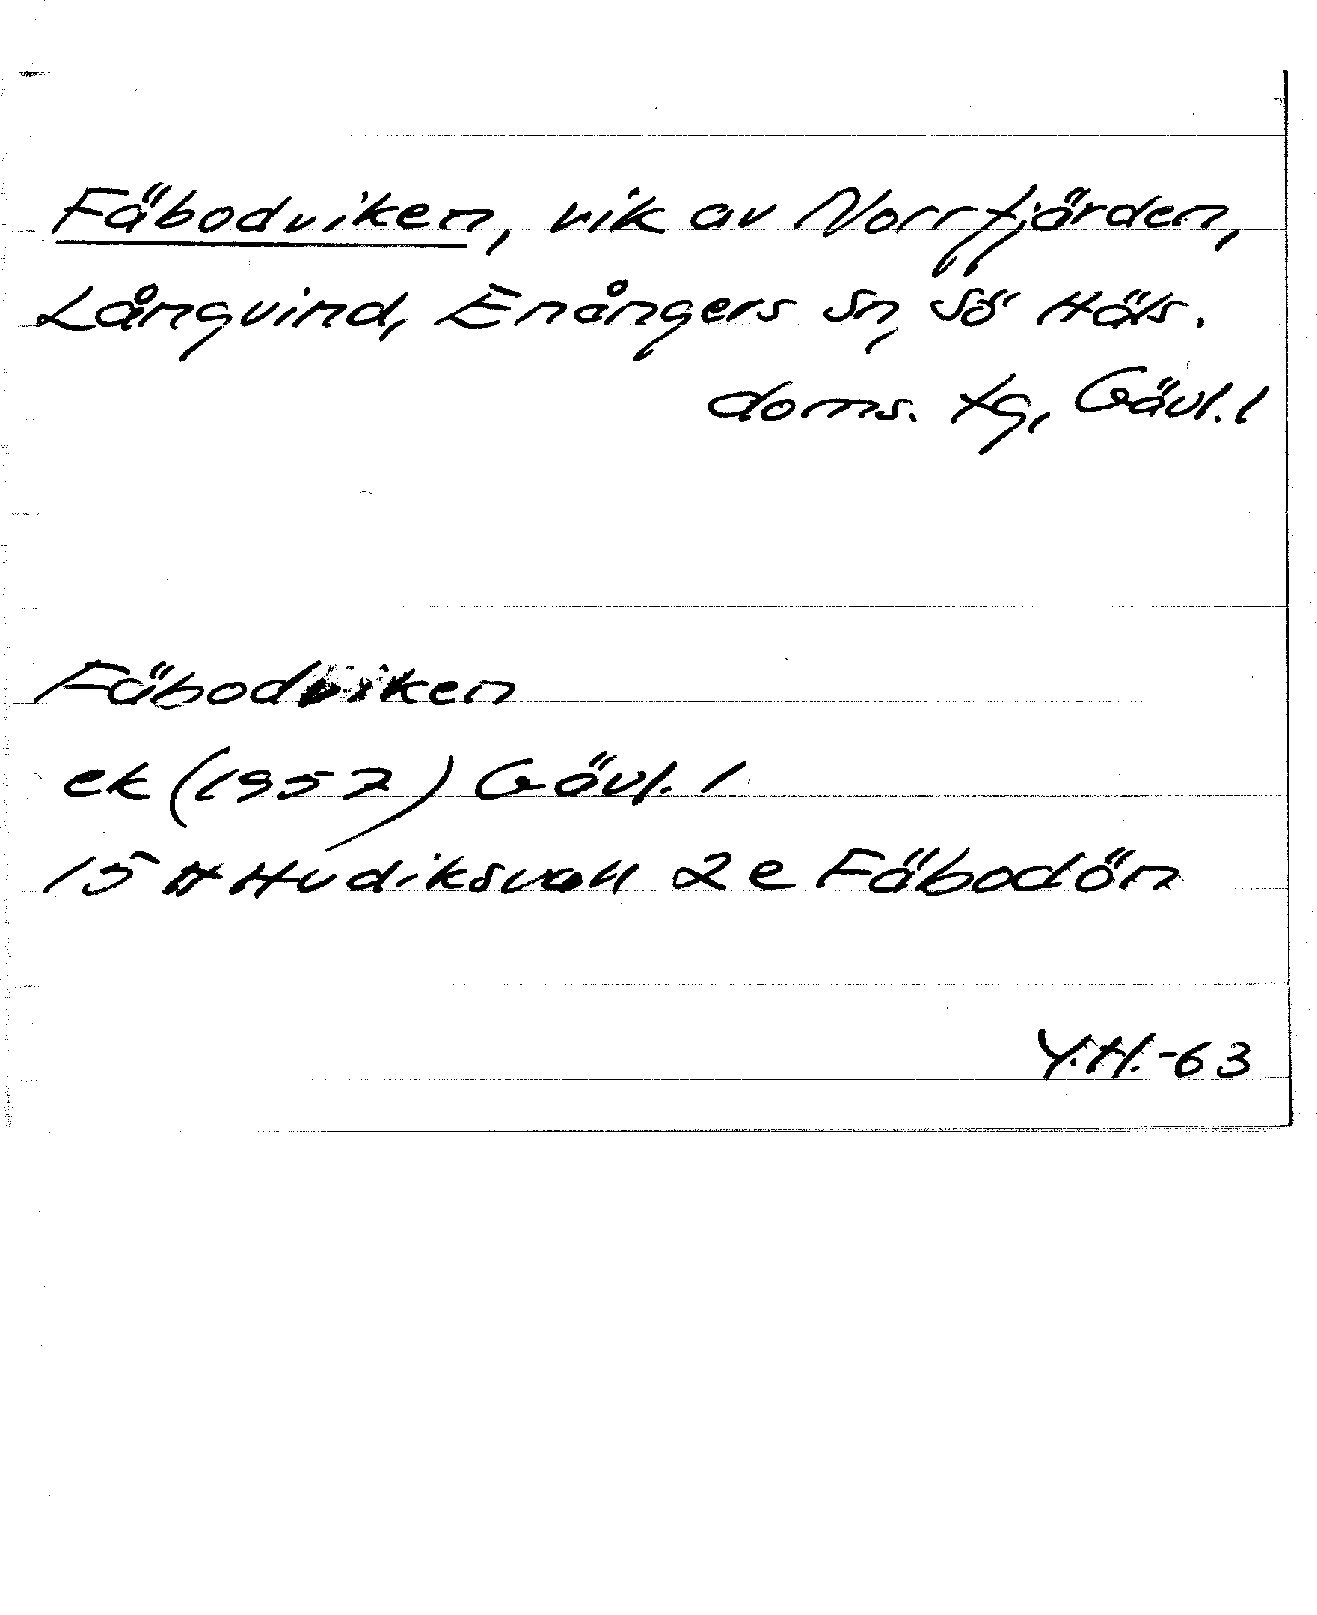 Fäbodviken, vik av Norrfjärden,
Långvind, Enångers sn, Sö Häls.
doms. tg, Gävl. l
Fäbodviken
ek (1957) Gävl. l
15 H Hudiksvall 2e Fäbodön
Y.H.-63